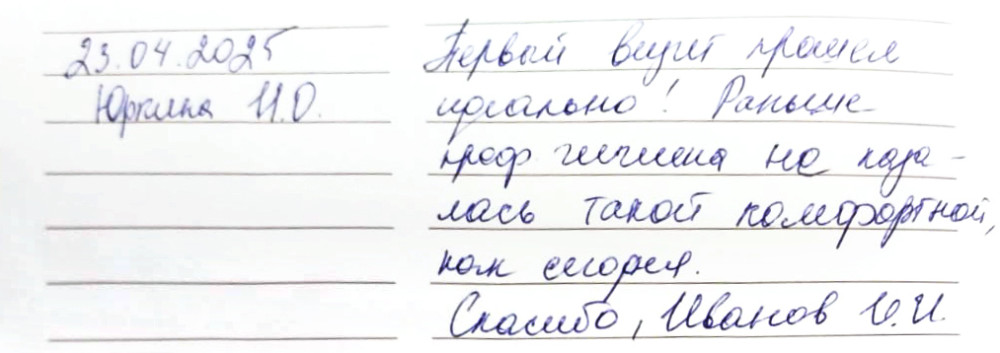 23.04.2025
Юркина И.О.
Первый визит прошел
идеально! Раньше
проф гигиена не каза-
лась такой комфортной,
как сегодня.
Спасибо, Иванов И.И.